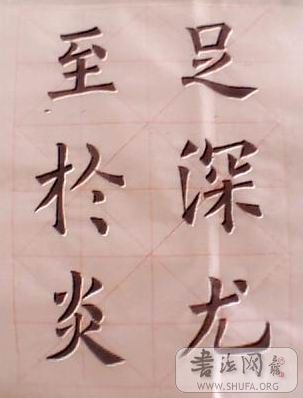 足深尤
至於炎
書法网
WWW.SHUFA.ORG